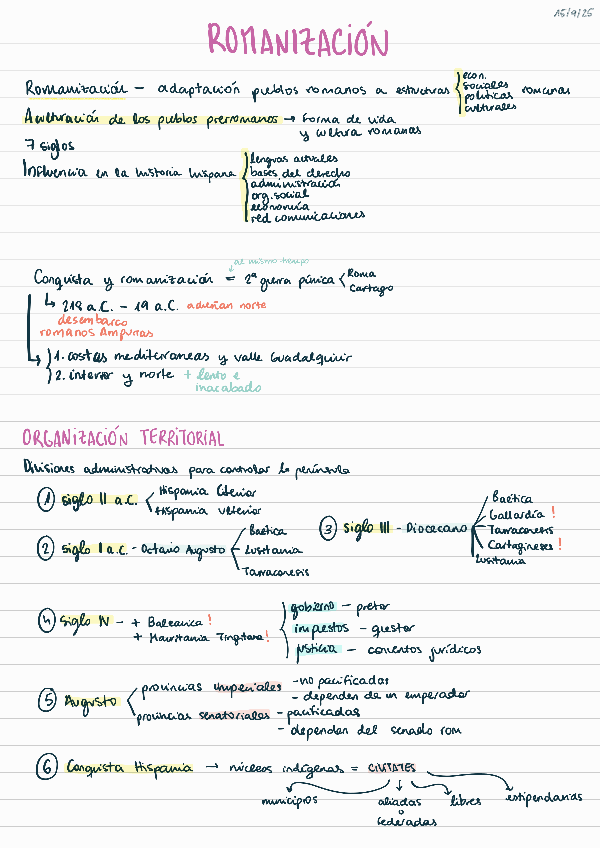 15/9/25
ROMANIZACIÓN
Romanización - adaptación pueblos romanos a estructuras econ. romanas
sociales
políticas
culturales
Aculturación de los pueblos prerromanos → forma de vida
y cultura romanas
7 siglos
Influencia en la historia hispana lenguas actuales
bases del derecho
administración
org. social
economía
red comunicaciones
al mismo tiempo
Conquista y romanización = 2ª guerra púnica Roma
Cartago
↳ 218 a.C. - 19 a.C. adueñan norte
desembarco
romanos Ampurias
1. costas mediterraneas y valle Guadalquivir
2. interior y norte + lento e
inacabado
ORGANIZACIÓN TERRITORIAL
Divisiones administrativas para controlar la península
① siglo II a.C. Hispania Citerior
Hispania Ulterior
② siglo I a.C. - Octavio Augusto Baetica
Lusitania
Tarraconesis
③ siglo III - Diocecano Baetica
Gallardía !
Tarraconesis
Cartagineses !
Lusitania
④ siglo IV - + Balearica !
+ Mauritania Tingitana !
gobierno - pretor
impuestos - questor
justicia - conentos jurídicos
⑤ Augusto provincias imperiales - no pacificadas
- dependen de un emperador
provincias senatoriales - pacificadas
- dependen del senado rom
⑥ Conquista Hispania → núcleos indígenas = CIVITATES
municipios aliadas libres estipendarias
o
federadas